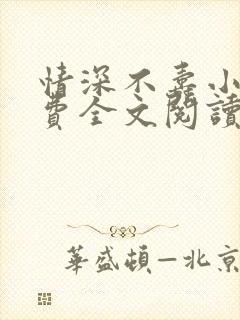 情深不壽小
費全文閱讀
華盛頓—北京